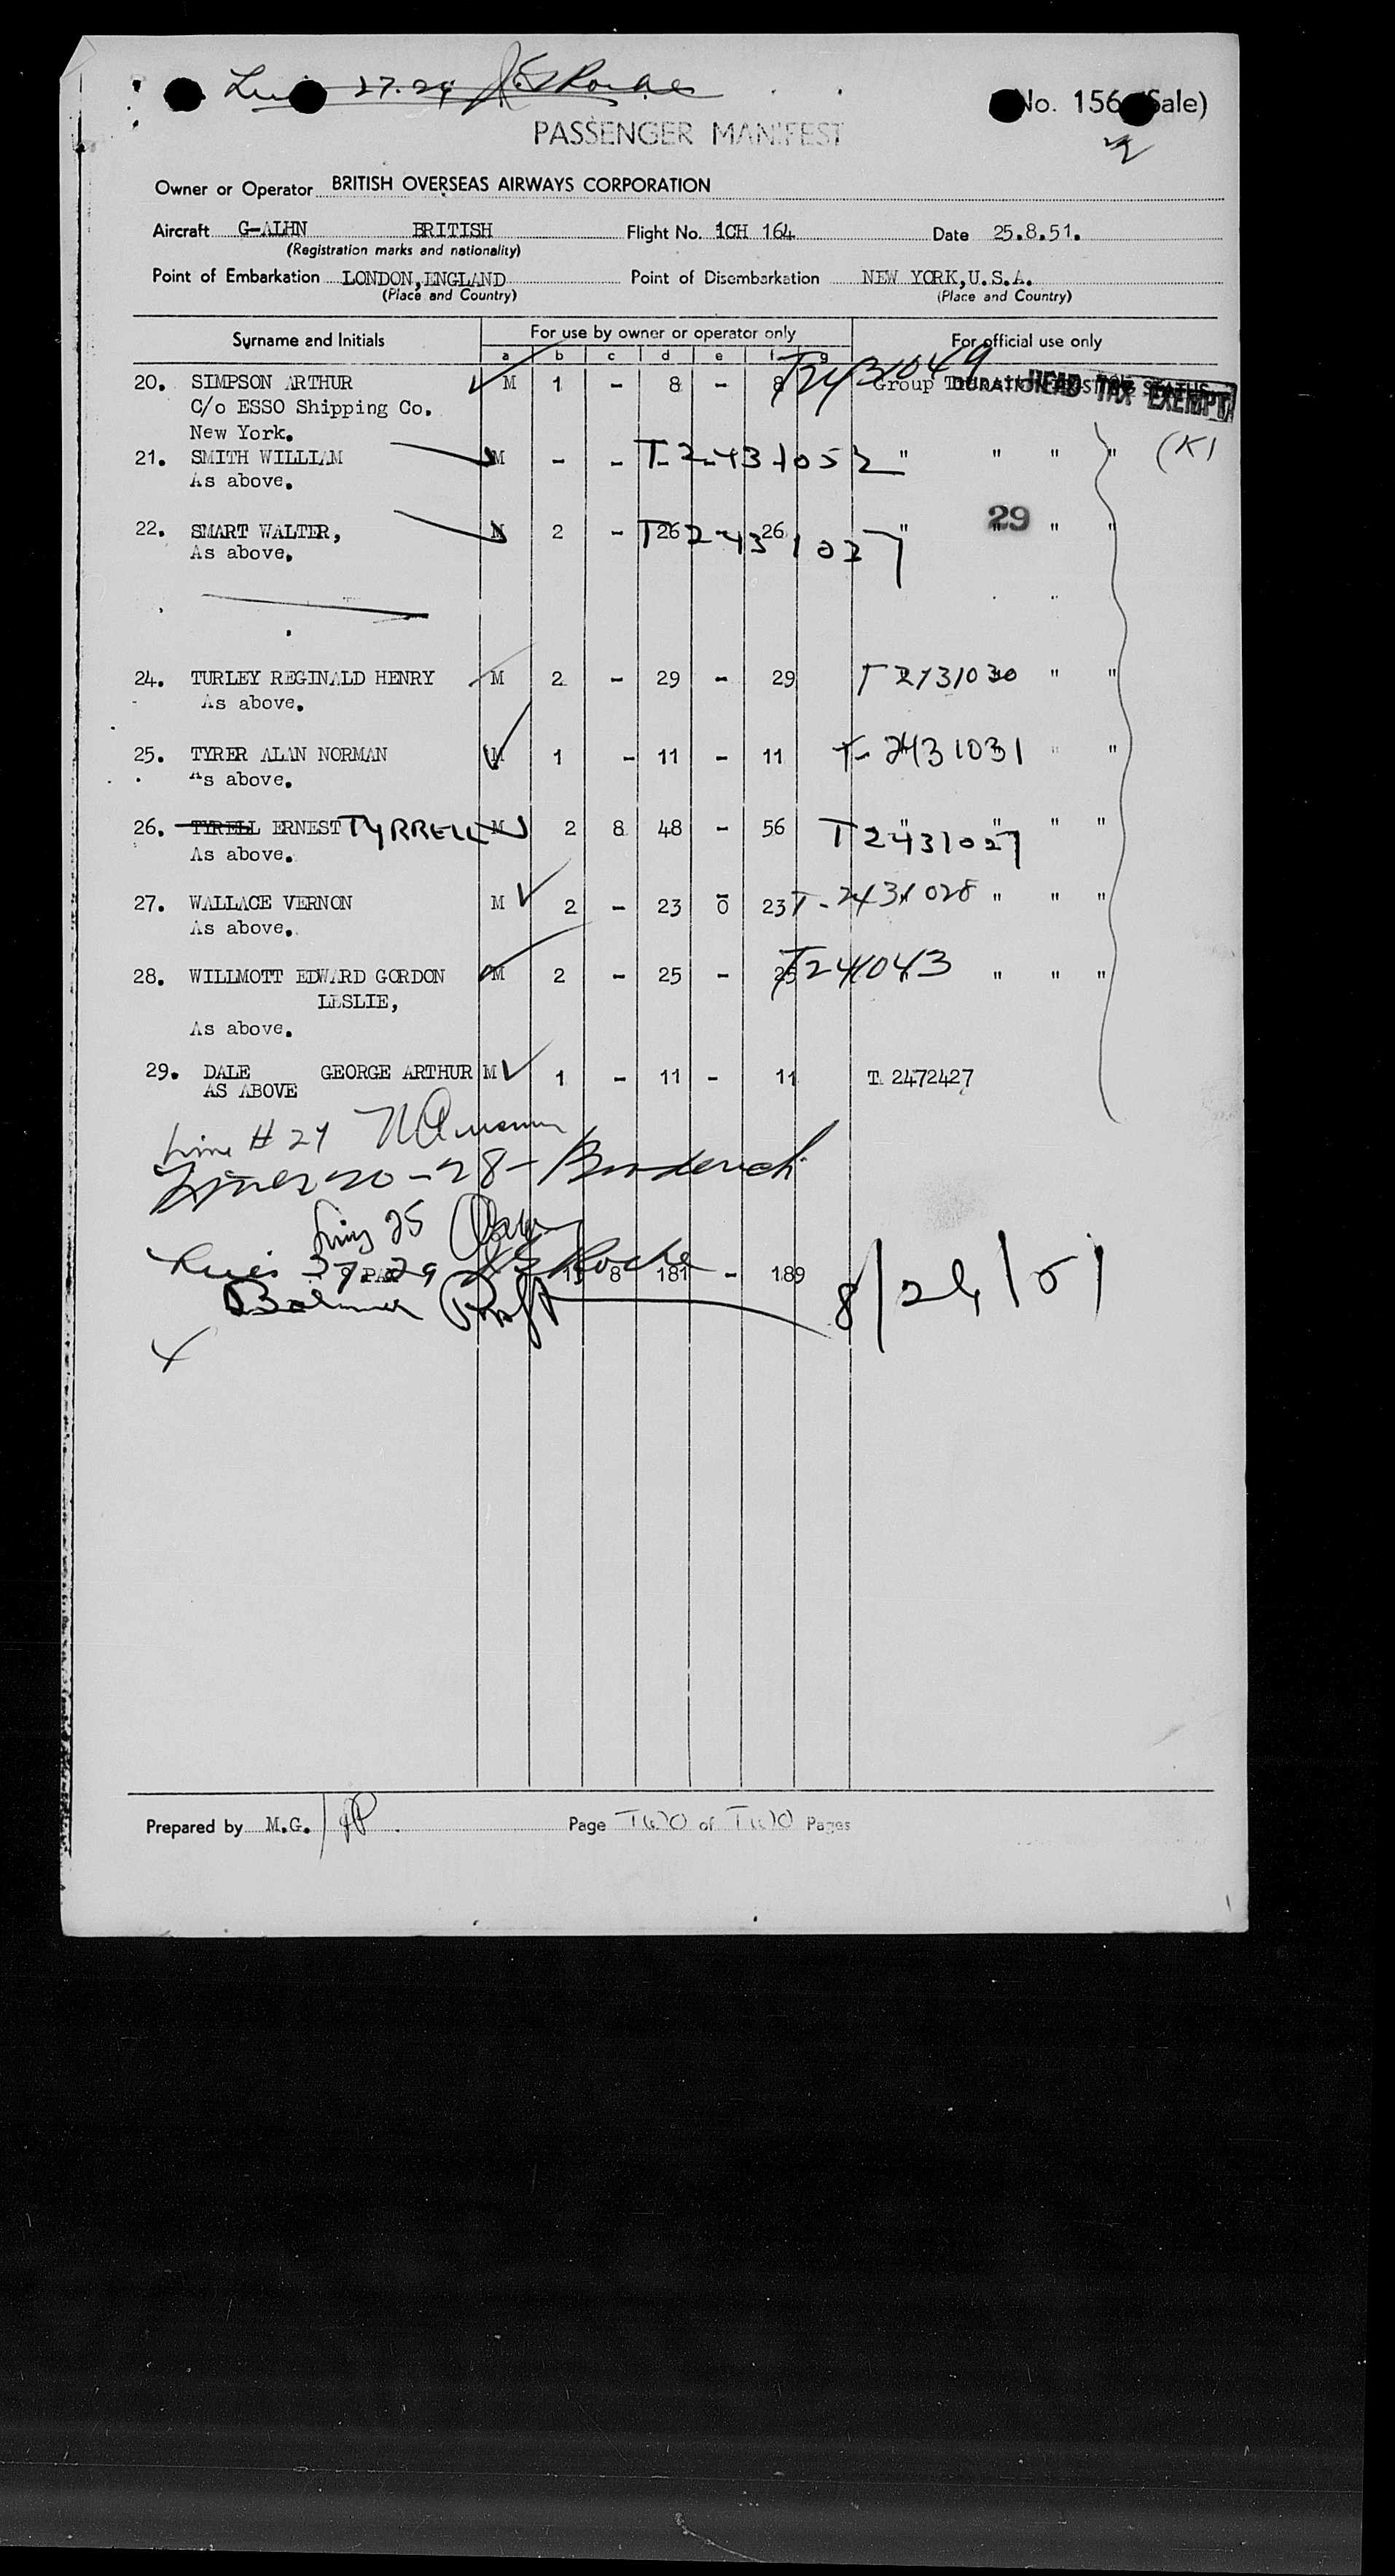 No. 156 (Sale)
PASSENGER MANIFEST
Owner or Operator BRITISH OVERSEAS AIRWAYS CORPORATION
Aircraft G-ALHN BRITISH Flight No. 1CH 164 Date 25.8.51.
(Registration marks and nationality)
Point of Embarkation LONDON, ENGLAND Point of Disembarkation NEW YORK, U.S.A.
(Place and Country) (Place and Country)
Surname and Initials For use by owner or operator only For official use only
a b c d e f g
20. SIMPSON ARTHUR M 1 - 8 - 8 T2431049 Group HEAD TAX EXEMPT
C/o ESSO Shipping Co.
New York.
21. SMITH WILLIAM M - - - - T-2431052 " " " " (K)
As above.
22. SMART WALTER, M 2 - 26 - 26 T2431037 " 29 " " "
As above.
24. TURLEY REGINALD HENRY M 2 - 29 - 29 T2431030 " "
As above.
25. TYRER ALAN NORMAN M 1 - 11 - 11 T-2431031 " "
As above.
26. TYRELL ERNEST TYRRELL M 2 8 48 - 56 T2431027 " " " "
As above.
27. WALLACE VERNON M 2 - 23 0 23 T-2431028 " " "
As above.
28. WILLMOTT EDWARD GORDON M 2 - 25 - 25 T241043 " " "
LESLIE,
As above.
29. DALE GEORGE ARTHUR M 1 - 11 - 11 T. 2472427
AS ABOVE
Line # 24
Lines 20-28- Broderick
Line 25
Lines 27.29 Roche 13 8 181 - 189
8/26/51
Prepared by M.G. Page TWO of TWO Pages